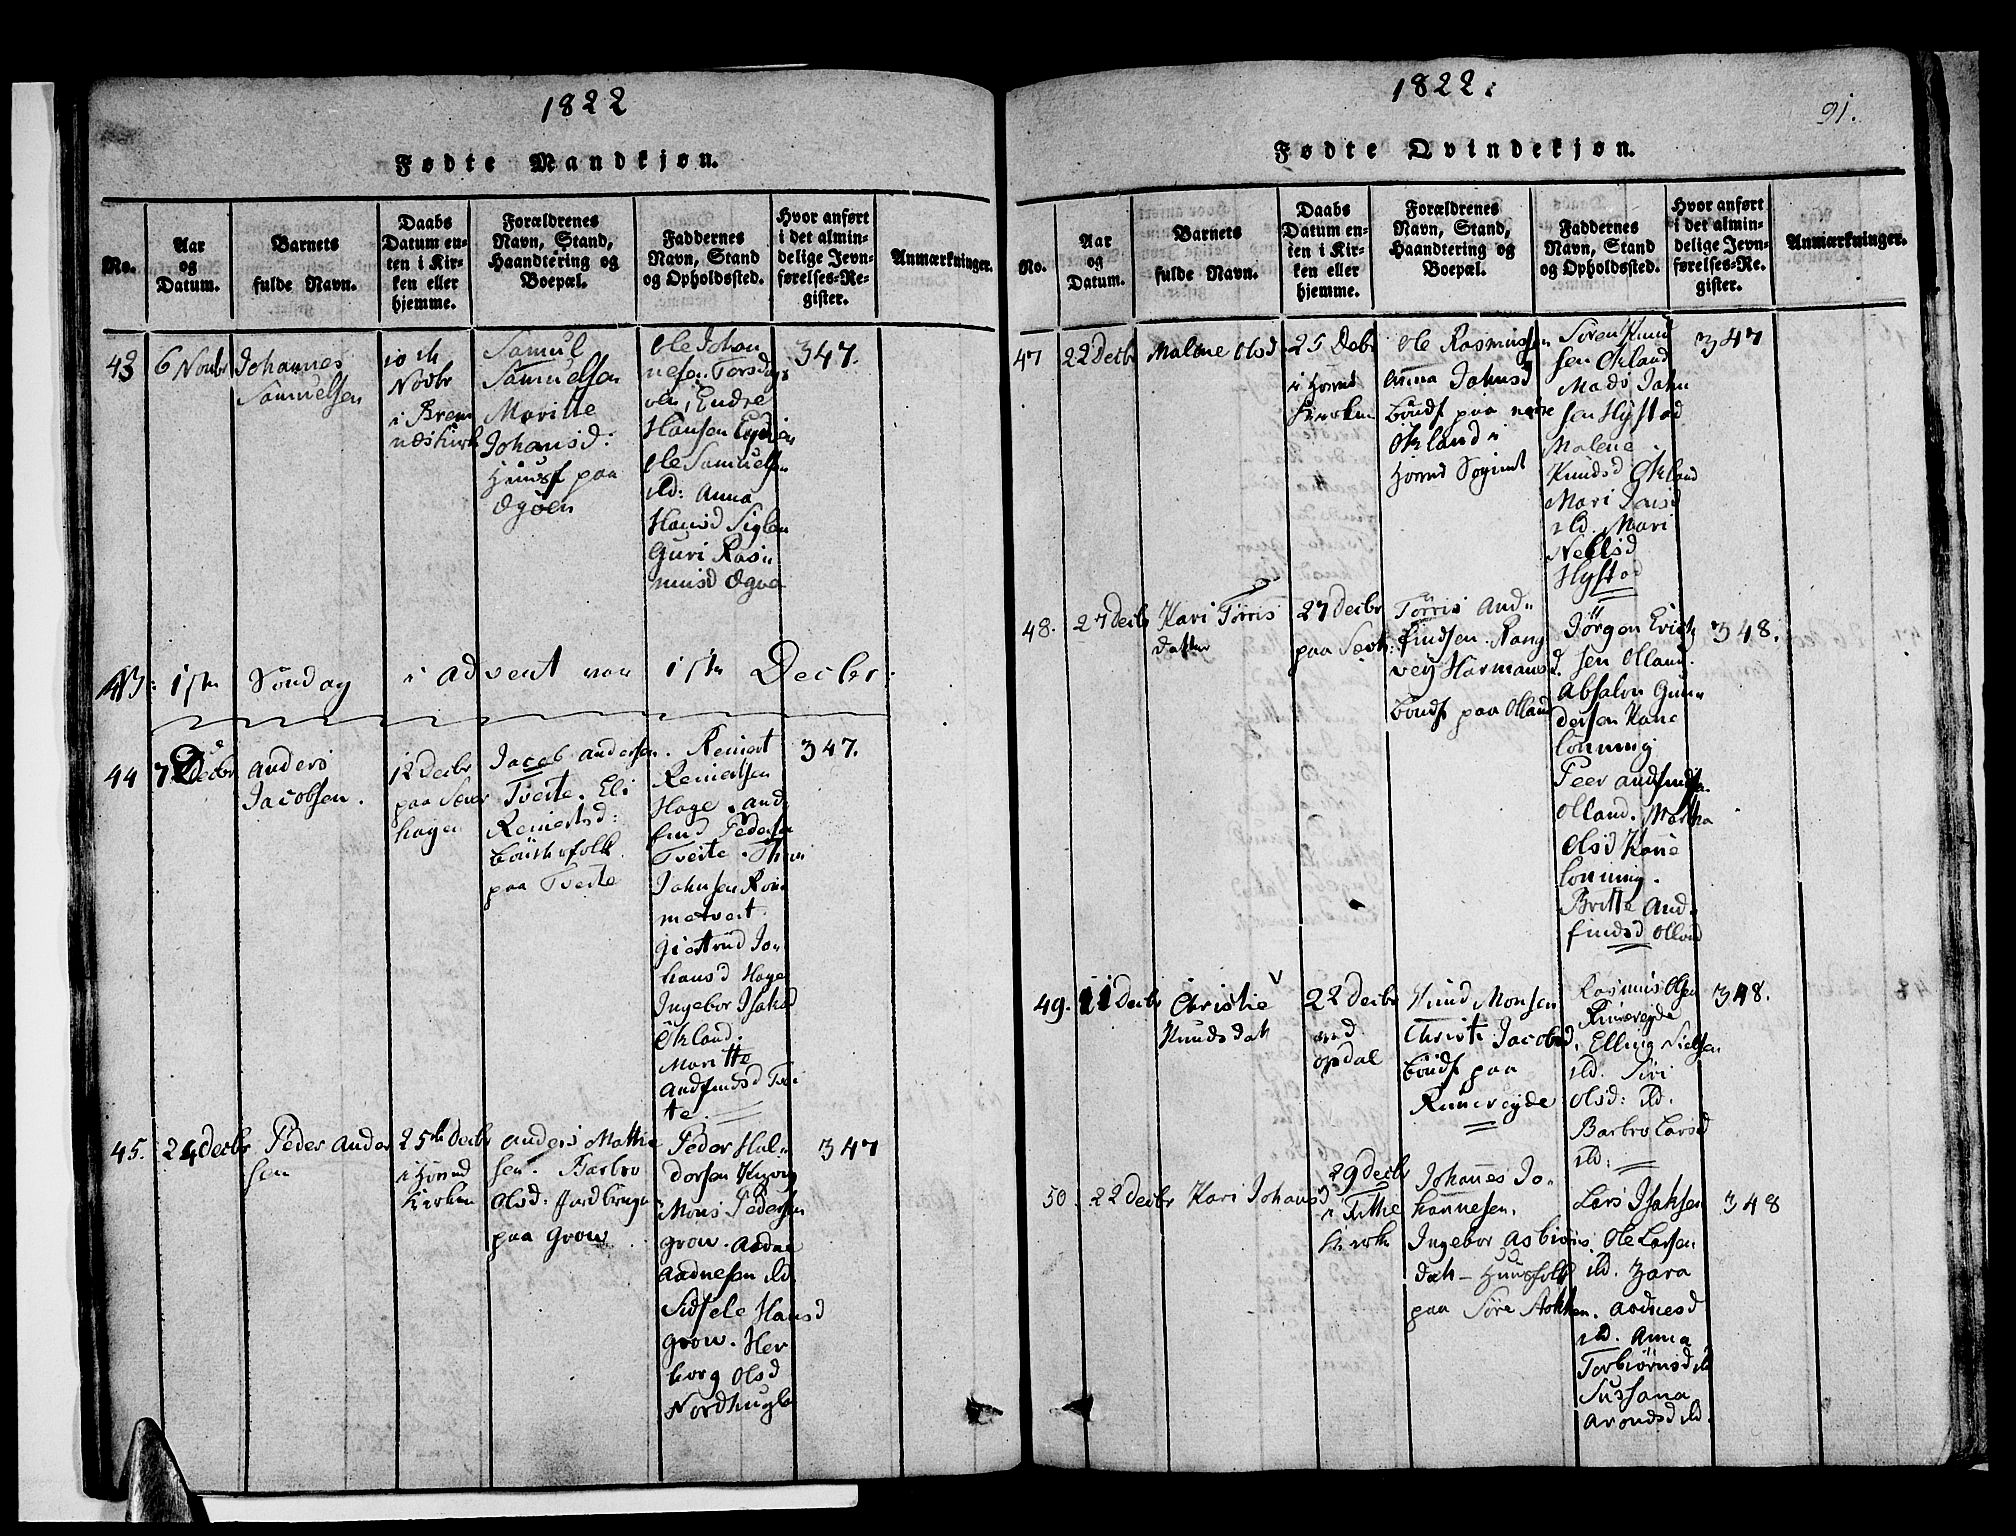 1822
Fødte Mandkjøn.
No.
Aar
og
Datum.
Barnets
fulde Navn.
Daabs
Datum en-
ten i Kir-
ken eller
hjemme.
Forældrenes
Navn, Stand,
Haandtering og
Boepæl.
Faddernes
Navn, Stand
og Opholdssted.
Hvor anført
i det almin-
delige Jevn-
førelses-Re-
gister.
Anmærkninger.
43
6 Novbr
Johannes
Samuelsen
10 de
Novbr
i Brem
næs Kirk
Samul
Samuelsen
Maritte
Johansd:
Huusf paa
Øgøen
Ole Johan
nesen Torsdag
øen, Endre
Hansen
Ole Samuelsen
ild: Anna
Hansd Siglen
Guri Ras„
musd Øgøe
347.
NB: 1ste Søndag i Advent var 1ste Decbr.
44
7 Decbr
Anders
Jacobsen.
12 Decbr
paa Sæver
hagen
Jacob Andersen
Tveite. Eli
Reinertsd:
Bøndefolk
paa Tveite
Reinert
Reinertsen
Hage. And
find Pedersen
Tveite.
Johnsen Rom
metveit.
Giertrud Jo„
hansd Hage
Ingebor Isaksd
Økland.
Maritte
Andfindsd Tvei
te.
347.
45.
24 Decbr
Peder Ander
sen
25de Decbr
i Hovred
Kirken
Anders Mathie
sen. Barbro
Olsd: Jordbruger
paa Grov
Peder Hal„
dorsen
Mons Pedersen
Grow. Aadne
Aadnesen ild
Sidsele Hansd
Grow. Her
borg Olsd
Nordhuglo
347
1822.
91.
Fødte Qvindekjøn.
No.
Aar
og
Datum.
Barnets
fulde Navn.
Daabs
Datum en-
ten i Kir-
ken eller
hjemme.
Forældrenes
Navn, Stand,
Haandtering og
Boepæl.
Faddernes
Navn, Stand
og Opholdssted.
Hvor anført
i det almin-
delige Jevn-
førelses-Re-
gister.
Anmærkninger.
47
22 Decbr
Malene Olsd
25 Debr
i
Kirken
Ole Rasmussen
Anna Johnsd
Bøndf paa
Økland i
Søren Knud
sen Økland
Mads John
sen Hystad
Malene
Knudsd Økland
Mari Jensd
ild. Mari
Nelsd
Hystad
347
48.
27 Decbr
Kari Tørris
datter
27 Decbr
paa
Tørris And„
findsen. Rang
vei Harmansd.
Bøndf paa Olland
Jørgen Erich
sen Olland.
Absalon Gun„
dersen Kane
lønning
Peer Andfindsen
Olland. Martha
Olsd Kane
lønning.
Britte And„
findsd Olland
348.
49.
11 Decbr
Christie
Knudsdatt
22 Decbr
ved
Opdal
Knud Monsen
Christi Jacobsd.
Bøndf paa
Runereyde
Rasmus Olsen
Runereyde
Elling Nielsen
ild. Siri
Olsd: ild.
Barbro Larsd
ild:
348.
50.
22 Decbr
Kari Johansd
29 Decbr
i Fitthe
Kirke
Johannes Jo„
hannesen.
Ingebor Asbiørns
datt – Huusfolk
paa Søre
Lars Isaksen
Ole Larsen
ild. Zara
Aadnesd
ild. Anna
Torbiørnsd ild
Sussana
ild.
348